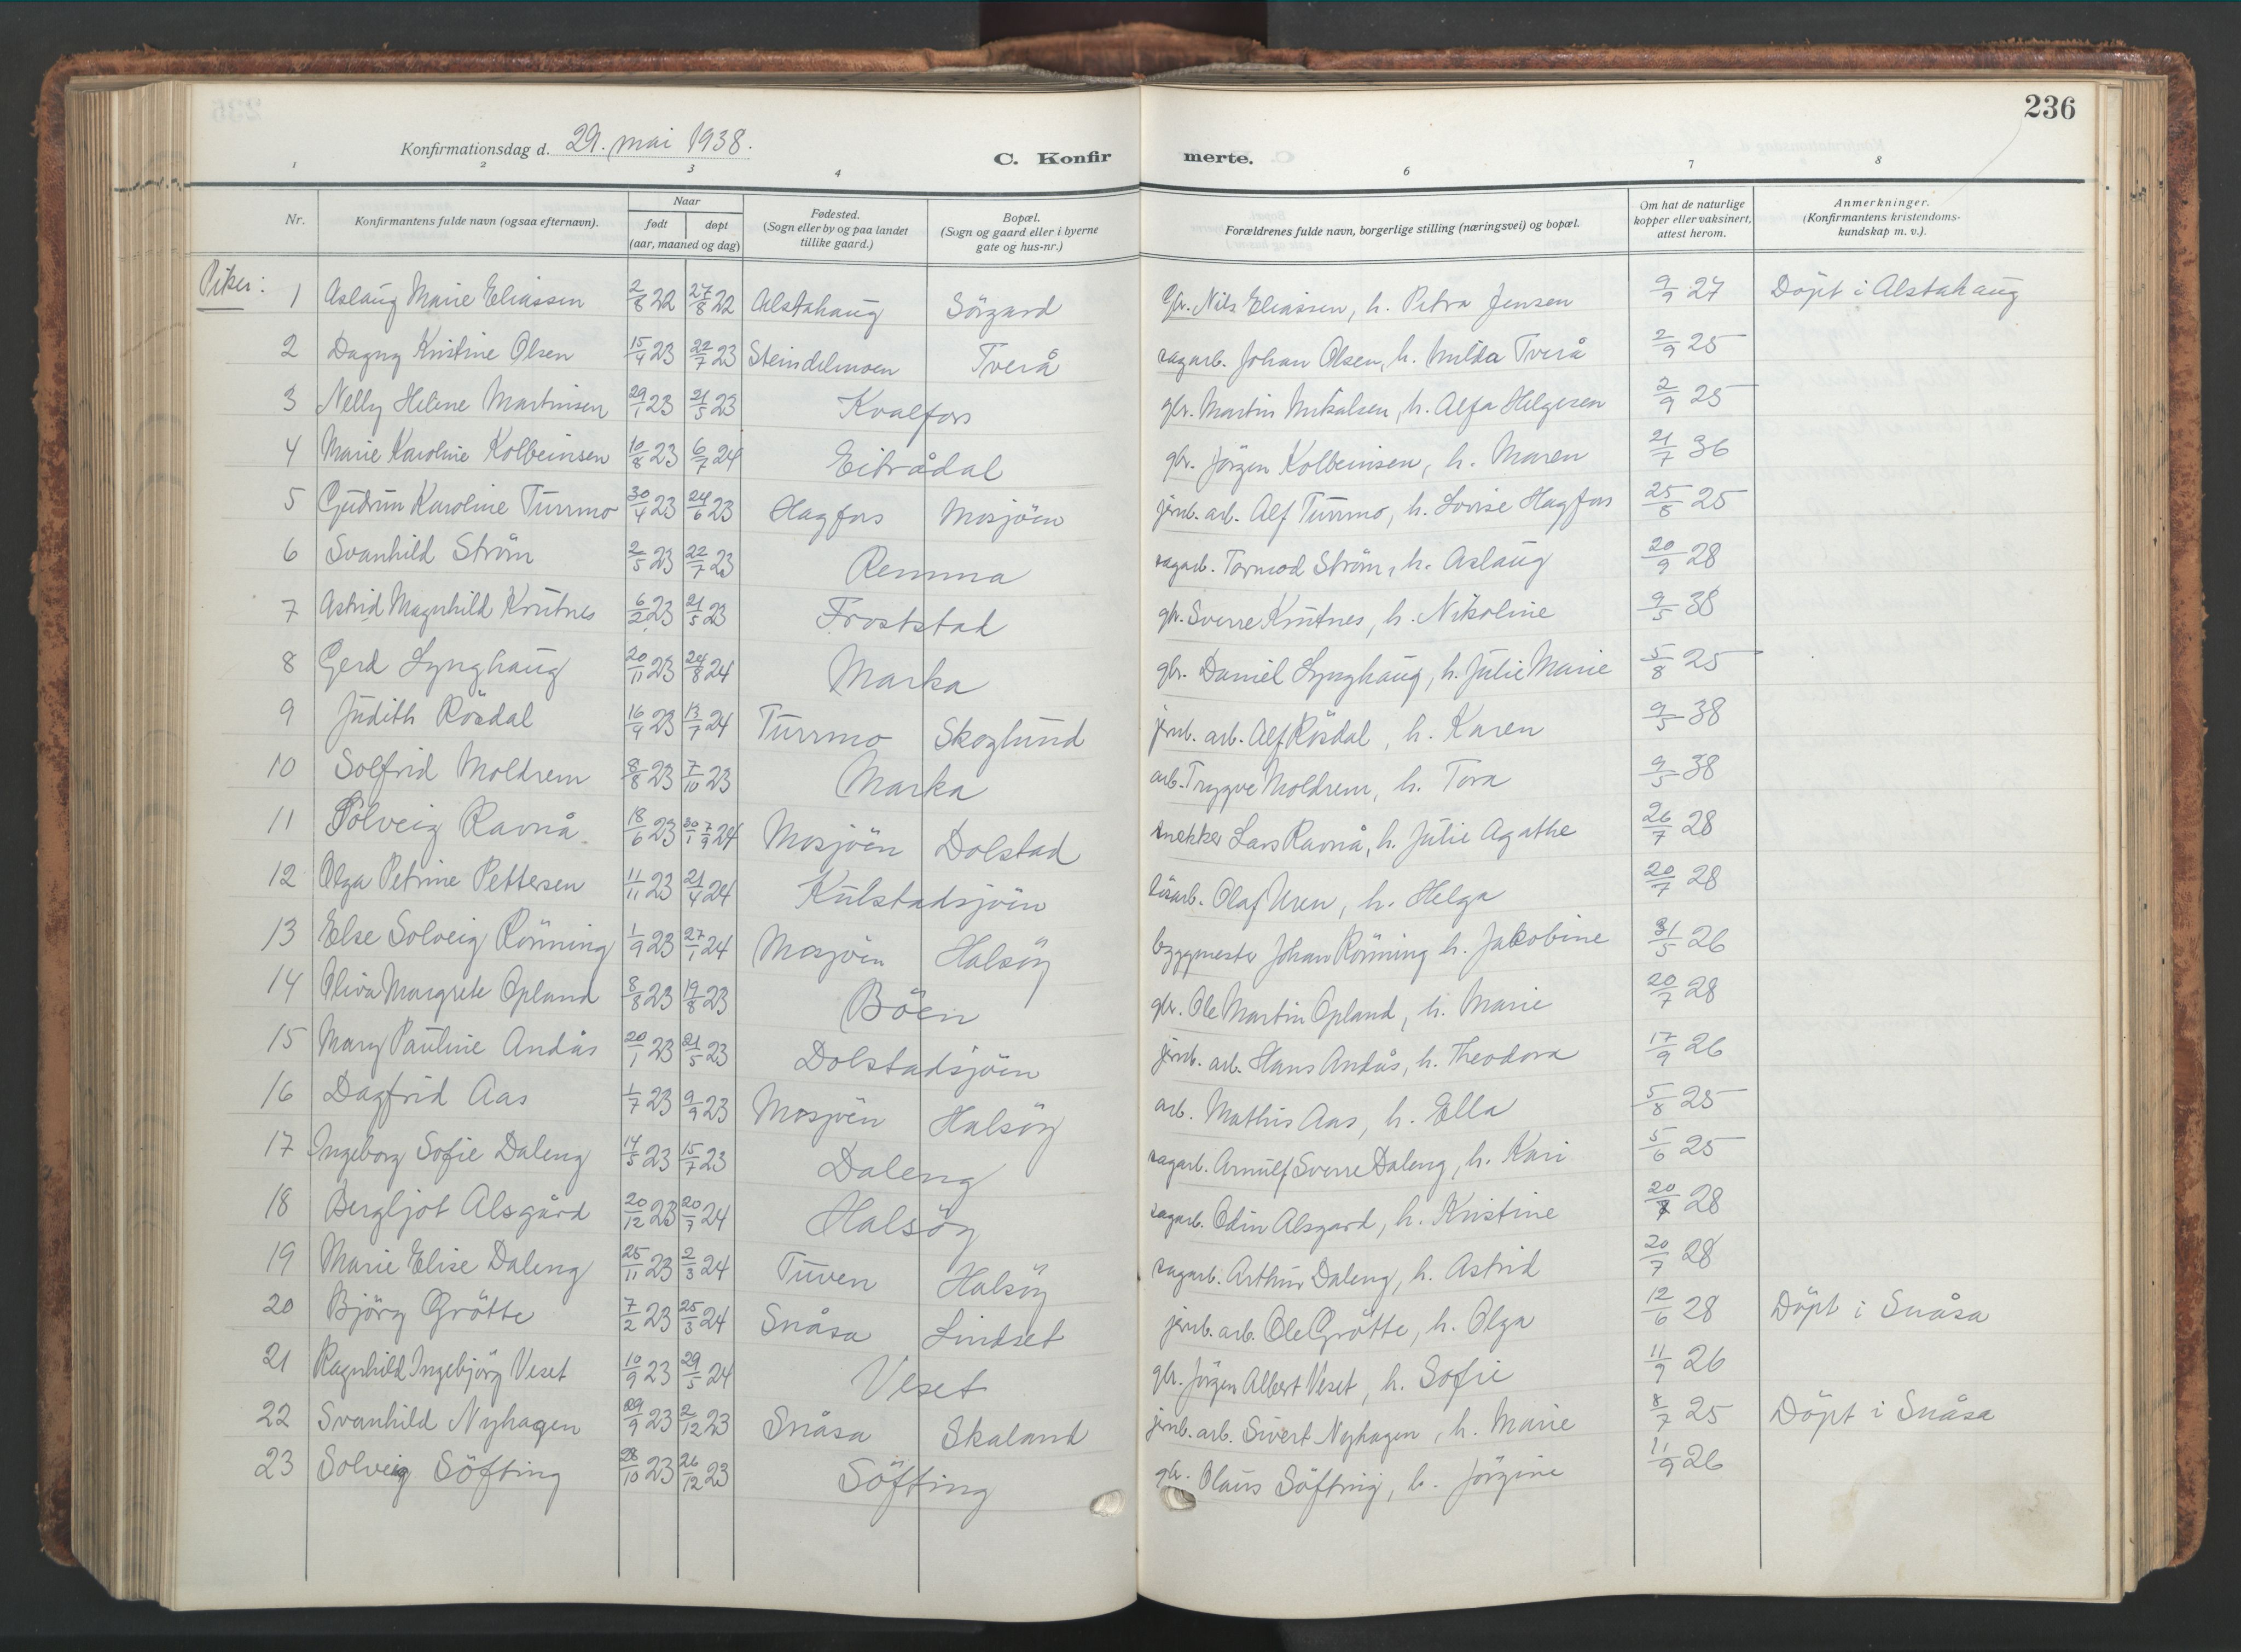 236
Konfirmationsdag d. 29. mai 1938.
C. Konfirmerte.
1 2 3 4 6 7 8
Nr. Konfirmantens fulde navn (ogsaa efternavn). Naar født døpt (aar, maaned og dag) Fødested. (Sogn eller by og paa landet tillike gaard.) Bopæl. (Sogn og gaard eller i byerne gate og hus-nr.) Forældrenes fulde navn, borgerlige stilling (næringsvei) og bopæl. Om hat de naturlige kopper eller vaksinert, attest herom. Anmerkninger. (Konfirmantens kristendoms-kundskap m. v.).
Piker:
1 Aslaug Marie Eliassen 2/8 22 27/8 22 Alstahaug Sörgard gbr. Nils Eliassen, h. Petra Jensen 9/9 27 Döpt i Alstahaug
2 Dagny Kristine Olsen 15/4 23 22/7 23 Steindelmoen Tverå sagarb. Johan Olsen, h. Milda Tverå 2/9 25
3 Nelly Helene Martinsen 29/1 23 21/5 23 Kvalfors gbr. Martin Mikalsen, h. Alfa Helgesen 2/9 25
4 Marie Karoline Kolbeinsen 10/8 23 6/7 24 Eiterådal gbr. Jörgen Kolbeinsen, h. Maren 21/7 36
5 Gudrun Karoline Turrmo 30/4 23 24/6 23 Hagfors Mosjöen jernb. arb. Alf Turrmo, h. Lovise Hagfors 25/8 25
6 Svanhild Ström 2/5 23 22/7 23 Remma sagarb. Tormod Ström, h. Aslaug 20/9 28
7 Astrid Magnhild Krutnes 6/2 23 21/5 23 Froststad gbr. Sverre Krutnes, h. Nikoline 9/5 38
8 Gerd Lynghaug 20/11 23 24/8 24 Marka gbr. Daniel Lynghaug, h. Julie Marie 5/8 25
9 Judith Rösdal 16/9 23 13/7 24 Turrmo Skoglund jernb. arb. Alf Rösdal, h. Karen 9/5 38
10 Solfrid Moldrem 8/8 23 7/10 23 Marka arb. Trygve Moldrem, h. Tora 9/5 38
11 Solveig Ravnå 18/6 23 30/1 7/9 24 Mosjöen Dolstad snekker Lars Ravnå, h. Julie Agathe 26/7 28
12 Olga Petrine Pettersen 11/11 23 21/4 24 Kulstadsjöen lösarb. Olaf Uren, h. Helga 20/7 28
13 Else Solveig Rönning 1/9 23 27/1 24 Mosjöen Halsöy byggmester Johan Rönning h. Jakobine 31/5 26
14 Oliva Margrete Opland 8/8 23 19/8 23 Böen gbr. Ole Martin Opland, h. Marie 20/7 28
15 Mary Pauline Andås 20/1 23 21/5 23 Dolstadsjöen jernb. arb. Hans Andås, h. Theodora 17/9 26
16 Dagfrid Aas 1/7 23 9/9 23 Mosjöen Halsöy arb. Mathis Aas, h. Ella 5/8 25
17 Ingeborg Sofie Daleng 14/5 23 15/7 23 Daleng sagarb. Arnulf Sverre Daleng, h. Kari 5/6 25
18 Bergljot Alsgård 20/12 23 20/7 24 Halsöy sagarb. Odin Alsgard, h. Kristine 20/7 28
19 Marie Elise Daleng 25/11 23 2/3 24 Tuven Halsöy sagarb. Arthur Daleng, h. Astrid 20/7 28
20 Björg Grötte 7/2 23 25/3 24 Snåsa Lindset jernb. arb. Ole Grötte, h. Olga 12/6 28 Döpt i Snåsa
21 Ragnhild Ingebjörg Veset 10/9 23 29/5 24 Veset gbr. Jörgen Albert Veset, h. Sofie 11/9 26
22 Svanhild Nyhagen 29/9 23 2/12 23 Snåsa Skaland jernb. arb. Sivert Nyhagen, h. Marie 8/7 25 Döpt i Snåsa
23 Solveig Söfting 28/10 23 26/12 23 Söfting gbr. Olaus Söfting, h. Jörgine 11/9 26